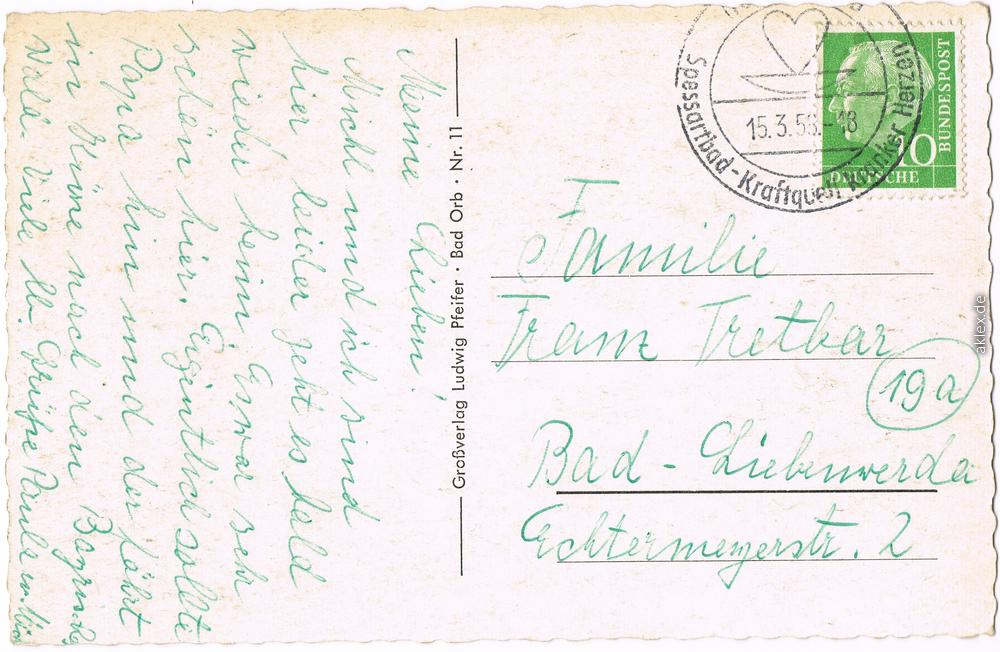 Meine Lieben!
Michl und ich sind
hier leider geht es bald
wieder heim. Es war sehr
schön hier. Eigentlich sollte
Papa hin und der fährt
in Kürze nach dem
Wald. Viele Grüße Paula u.
Großverlag Ludwig Pfeifer · Bad Orb · Nr. 11
Spessartbad-Kraftquell kranker Herzen
15.3.58.-18
10
DEUTSCHE
BUNDESPOST
Familie
Franz Tretbar
19a
Bad-Liebenwerda
Echtermeyerstr. 2
aklex.de